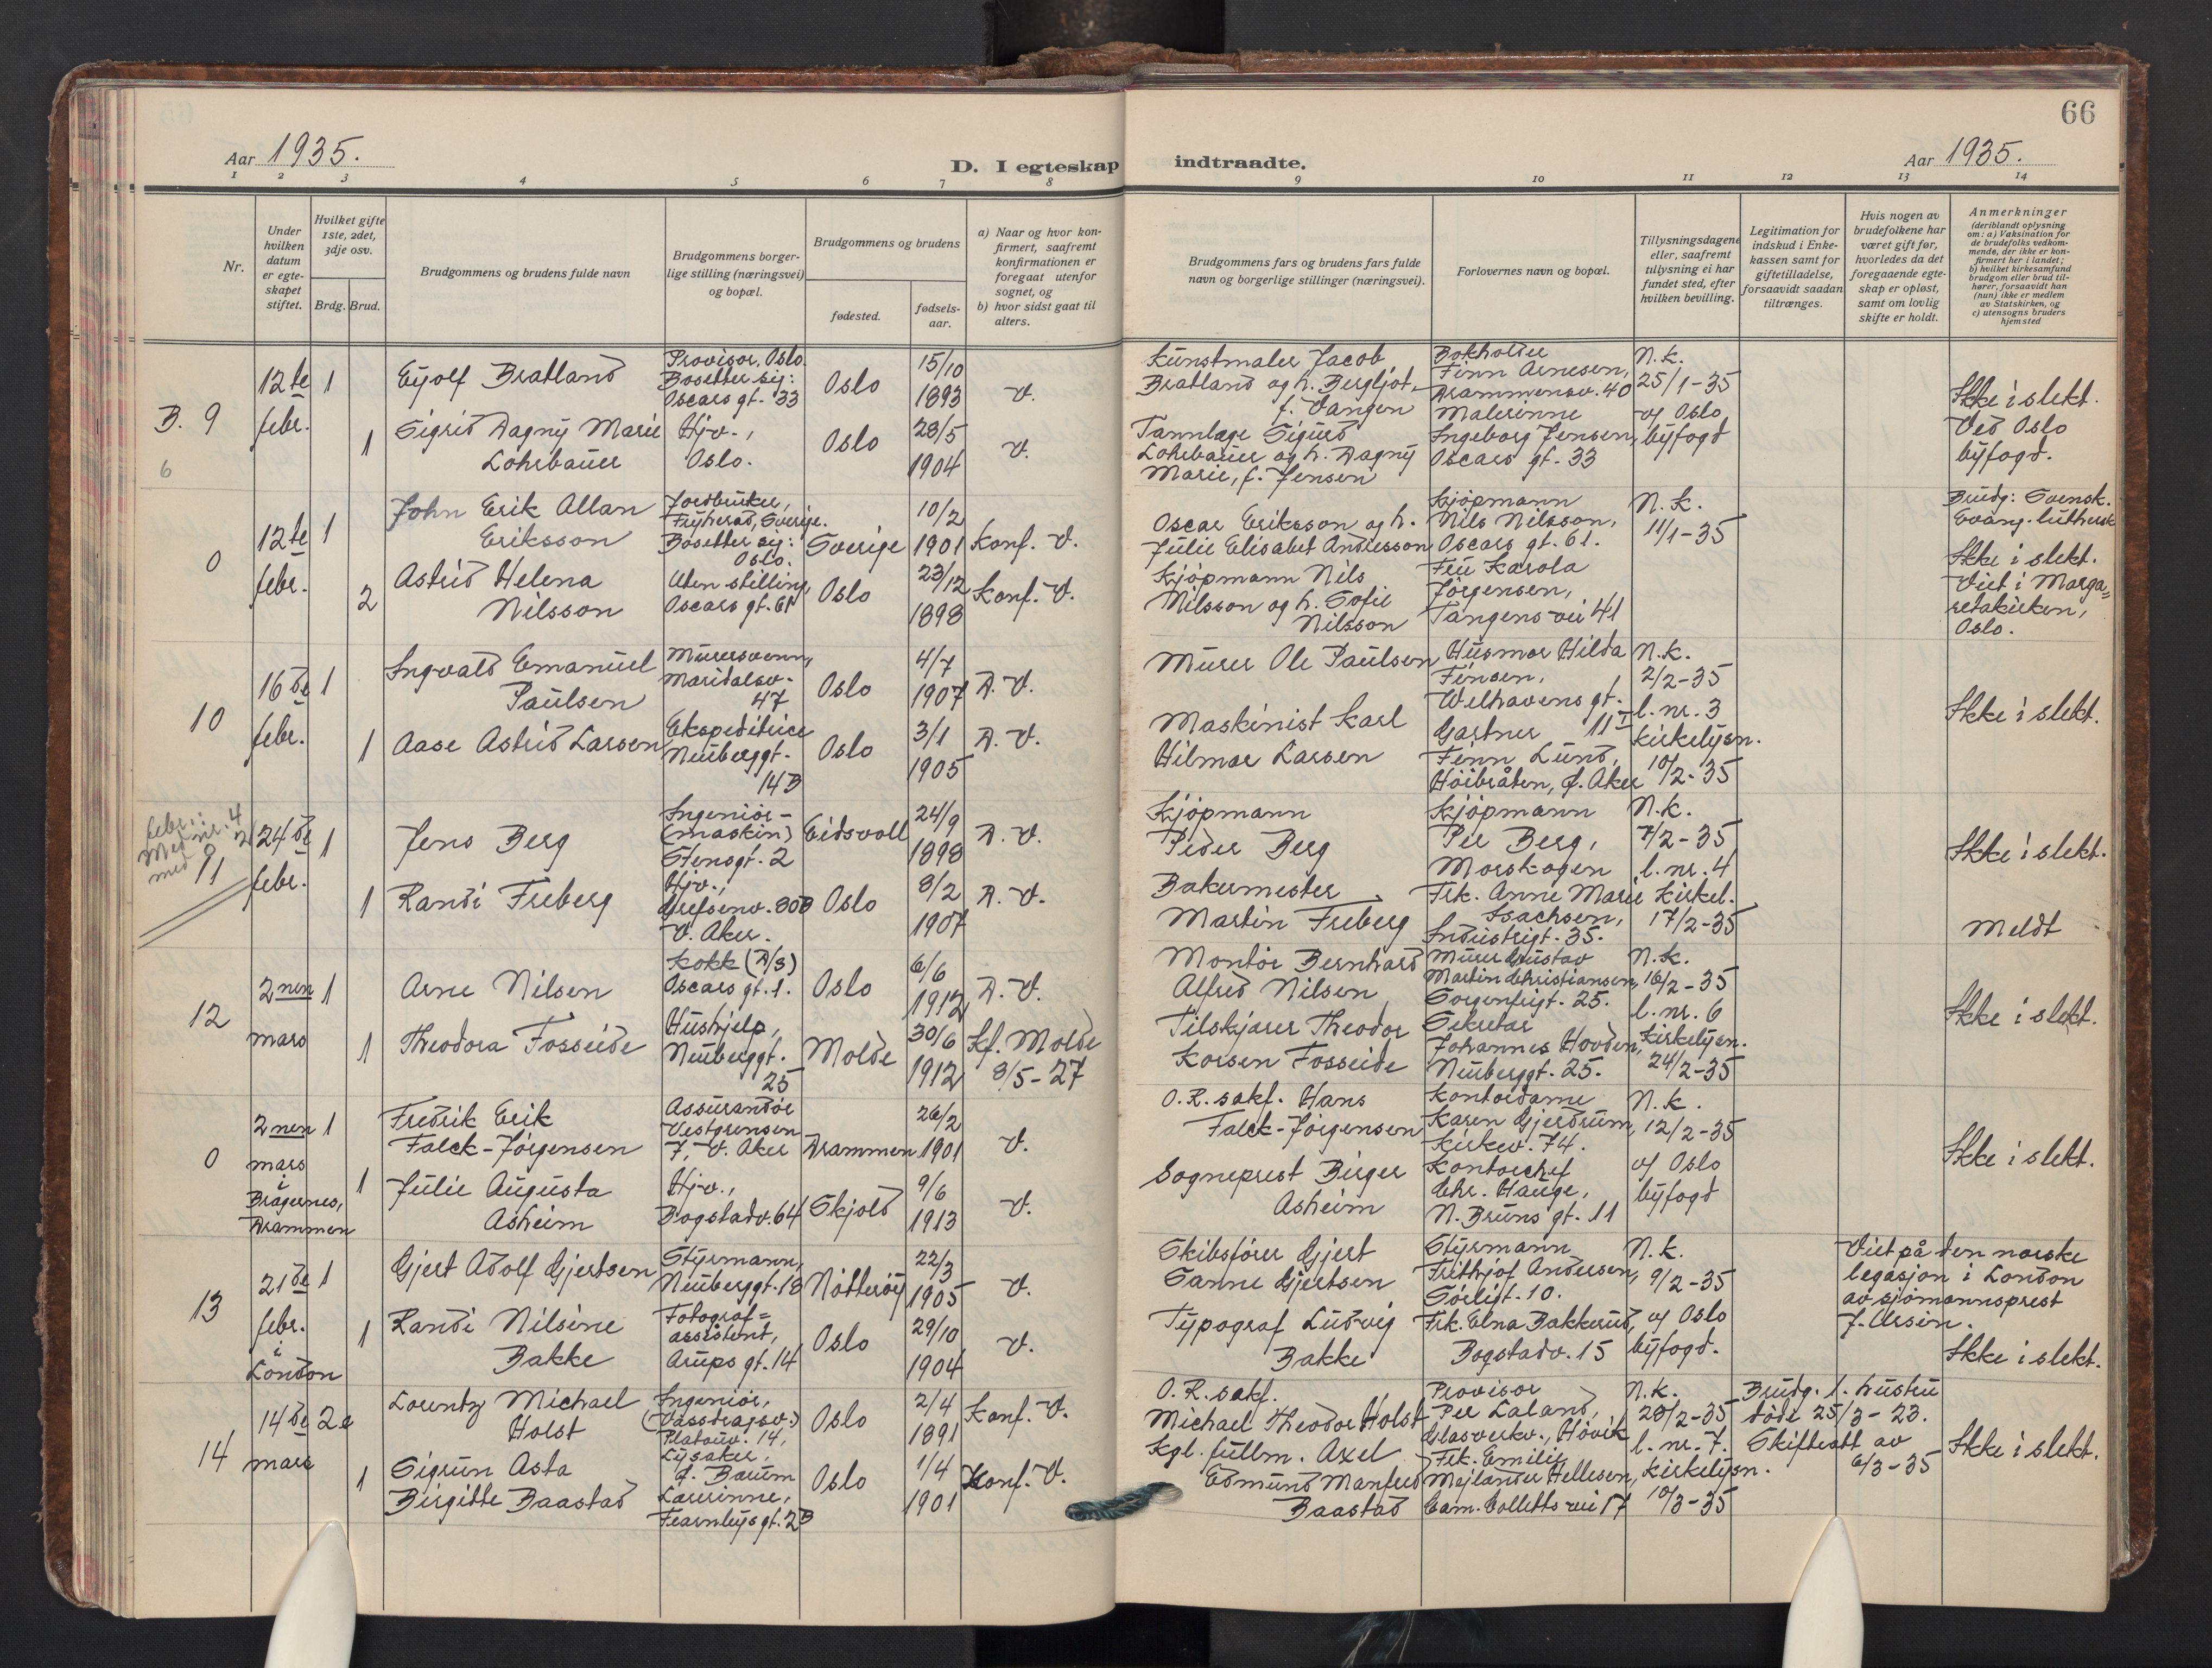 66
Aar 1935.
D. I egteskap indtraadte.
Aar 1935.
1 2 3 4 5 6 7 8 9 10 11 12 13 14
Nr.
Under hvilken datum er egte-skapet stiftet.
Hvilket gifte 1ste, 2det, 3dje osv.
Brdg. Brud.
Brudgommens og brudens fulde navn
Brudgommens borger-lige stilling (næringsvei) og bopæl.
Brudgommens og brudens
fødested.
fødsels-aar.
a) Naar og hvor kon-firmert, saafremt konfirmationen er foregaat utenfor sognet, og
b) hvor sidst gaat til alters.
Brudgommens fars og brudens fars fulde navn og borgerlige stillinger (næringsvei).
Forlovernes navn og bopæl.
Tillysningsdagene eller, saafremt tillysning ei har fundet sted, efter hvilken bevilling.
Legitimation for indskud i Enke-kassen samt for giftetilladelse, forsaavidt saadan tiltrænges.
Hvis nogen av brudefolkene har været gift før, hvorledes da det foregaaende egte-skap er opløst, samt om lovlig skifte er holdt.
Anmerkninger
(deriblandt oplysning om: a) Vaksination for de brudefolks vedkom-mende, der ikke er kon-firmert her i landet; b) hvilket kirkesamfund brudgom eller brud til-hører, forsaavidt han (hun) ikke er medlem av Statskirken, og c) utensogns bruders hjemsted
B. 9
6
12te
febr.
1
Eyolf Bratland
Provisor, Oslo.
Bosetter sig:
Oscars gt. 33
Oslo
15/10
1893
V.
Kunstmaler Jacob
Bratland og h. Bergljot,
f. Vangen
Bokholder
Finn Arnesen,
Drammensv. 40
N.k.
25/1-35
v/ Oslo
byfogd
Ikke i slekt.
Ved Oslo
byfogd.
1
Sigrid Dagny Marie
Lohrbauer
Hjv.,
Oslo.
Oslo
28/5
1904
V.
Tannlæge Sigurd
Lohrbauer og h. Dagny
Marie, f. Jensen
Malerinne
Ingeborg Jensen,
Oscars gt. 33
0
12te
febr.
1
John Erik Allan
Eriksson
Jordbruker,
Fryherad, Sverige.
Bosetter sig:
Oslo.
Sverige
10/2
1901
Konf. V.
Oscar Eriksson og h.
Julie Elisabet Andersson
Kjøpmann
Nils Nilsson,
Oscars gt. 61.
N.k.
11/1-35
Brudg: Svensk.
Evang. luthersk
Ikke i slekt.
Viet i Marga=
retakirken,
Oslo.
2
Astrid Helena
Nilsson
Uten stilling,
Oscars gt. 61
Oslo
23/12
1898
Konf. V.
Kjøpmann Nils
Nilsson og h. Sofie
Nilsson
Fru Karola
Jørgensen,
Tangens vei 41
10
16de
febr.
1
Ingvald Emanuel
Paulsen
Murersvenn,
Maridalsv.
47
Oslo
4/7
1907
D. V.
Murer Ole Paulsen
Husmor Hilda
Finsen,
Welhavens gt.
11 I
N.k.
2/2-35
l. nr. 3
Kirkelysn.
10/2-35
Ikke i slekt.
1
Aase Astrid Larsen
Ekspeditrice
Neuberggt.
14B
Oslo
3/1
1905
D. V.
Maskinist Karl
Hilmar Larsen
Gartner
Finn Lund,
Høibråten, Ø. Aker
febr.:
Med nr. 4
med
11
24de
febr.
1
Jens Berg
Ingeniør-
(maskin)
Stensgt. 2
Eidsvoll
24/9
1898
D. V.
Kjøpmann
Peder Berg
Kjøpmann
Per Berg,
Morskogen
N.k.
7/2-35
l. nr. 4
Kirkel.
17/2-35
Ikke i slekt.
Meldt
1
Randi Freberg
Hjv.,
Grefsenv. 80B
V. Aker.
Oslo
8/2
1907
D. V.
Bakermester
Martin Freberg
Frk. Anne Marie
Isachsen,
Industrigt. 35.
12
2nen
mars
1
Arne Nilsen
Kokk (D/S)
Oscars gt. 1.
Oslo
6/6
1912
D. V.
Montør Bernhard
Alfred Nilsen
Murer Gustav
Martin Christiansen,
Sorgenfrigt. 25.
N.k.
16/2-35
l. nr. 6
Kirkelysn.
24/2-35
Ikke i slekt.
1
Theodora Fosseide
Hushjelp,
Neuberggt.
25
Molde
30/6
1912
Kf. Molde
8/5-27
Tilskjærer Theodor
Korsen Fosseide
Sekretær
Johannes Hovden,
Neuberggt. 25.
0
2nen
mars
i
Bragernes,
Drammen
1
Fredrik Erik
Falck-Jørgensen
Assurandør
Vestgrensen
7, V. Aker
Drammen
26/2
1901
V.
O.R.sakf. Hans
Falck-Jørgensen
Kontordame
Karen Gjerdrum,
Kirkev. 74.
N.k.
12/2-35
v/ Oslo
byfogd
Ikke i slekt.
1
Julie Augusta
Asheim
Hjv.,
Bogstadv. 64
Skjold
9/6
1913
V.
Sogneprest Birger
Asheim
Kontorchef
Chr. Hauge,
N. Bruns gt. 11
13
21de
febr.
i
London
1
Gjert Adolf Gjertsen
Styrmann,
Neuberggt. 18
Nøtterøy
22/3
1905
V.
Skibsfører Gjert
Sanne Gjertsen
Styrmann
Frithjof Andersen,
Sørligt. 10.
N.k.
9/2-35
v/ Oslo
byfogd.
Viet på den norske
legasjon i London
av sjømannsprest
Ikke i slekt.
1
Randi Nilsine
Bakke
Fotograf=
assistent,
Arups gt. 14
Oslo
29/10
1904
V.
Typograf Ludvig
Bakke
Frk. Elna Bakkerud,
Bogstadv. 15
14
14de
mars
2e
Lorentz Michael
Holst
Ingeniør,
(Vassdragsv.)
Platåv. 14,
Lysaker,
Ø. Bærum
Oslo
2/4
1891
Konf. V.
O.R.sakf.
Michael Theodor Holst
Provisor
Per Laland,
Glasverkv., Høvik
N.k.
28/2-35
l. nr. 7.
Kirkelysn.
10/3-35
Brudg. 1. hustru
døde 25/3-23.
Skifteatt av
6/3-35
Ikke i slekt.
1
Sigrun Asta
Birgitte Baastad
Lærerinne,
Fearnleys gt. 2B
Oslo
1/4
1901
Konf. V.
Kgl. fullm. Axel
Edmund Manfred
Baastad
Frk. Emilie
Mejlænder Hellesen,
Cam. Colletts vei 17